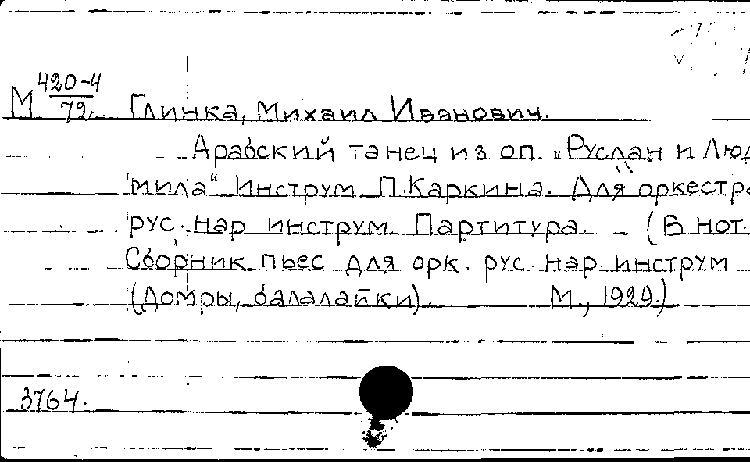 М 420-4/79
Глинка, Михаил Иванович.
Арабский танец из оп. „Руслан и Люд
мила“ Инструм. П. Каркина. Для оркестра
рус. нар инструм. Партитура. – (В нот.
Сборник пьес для орк. рус. нар инструм
(домры, балалайки). М., 1929.)
3764.